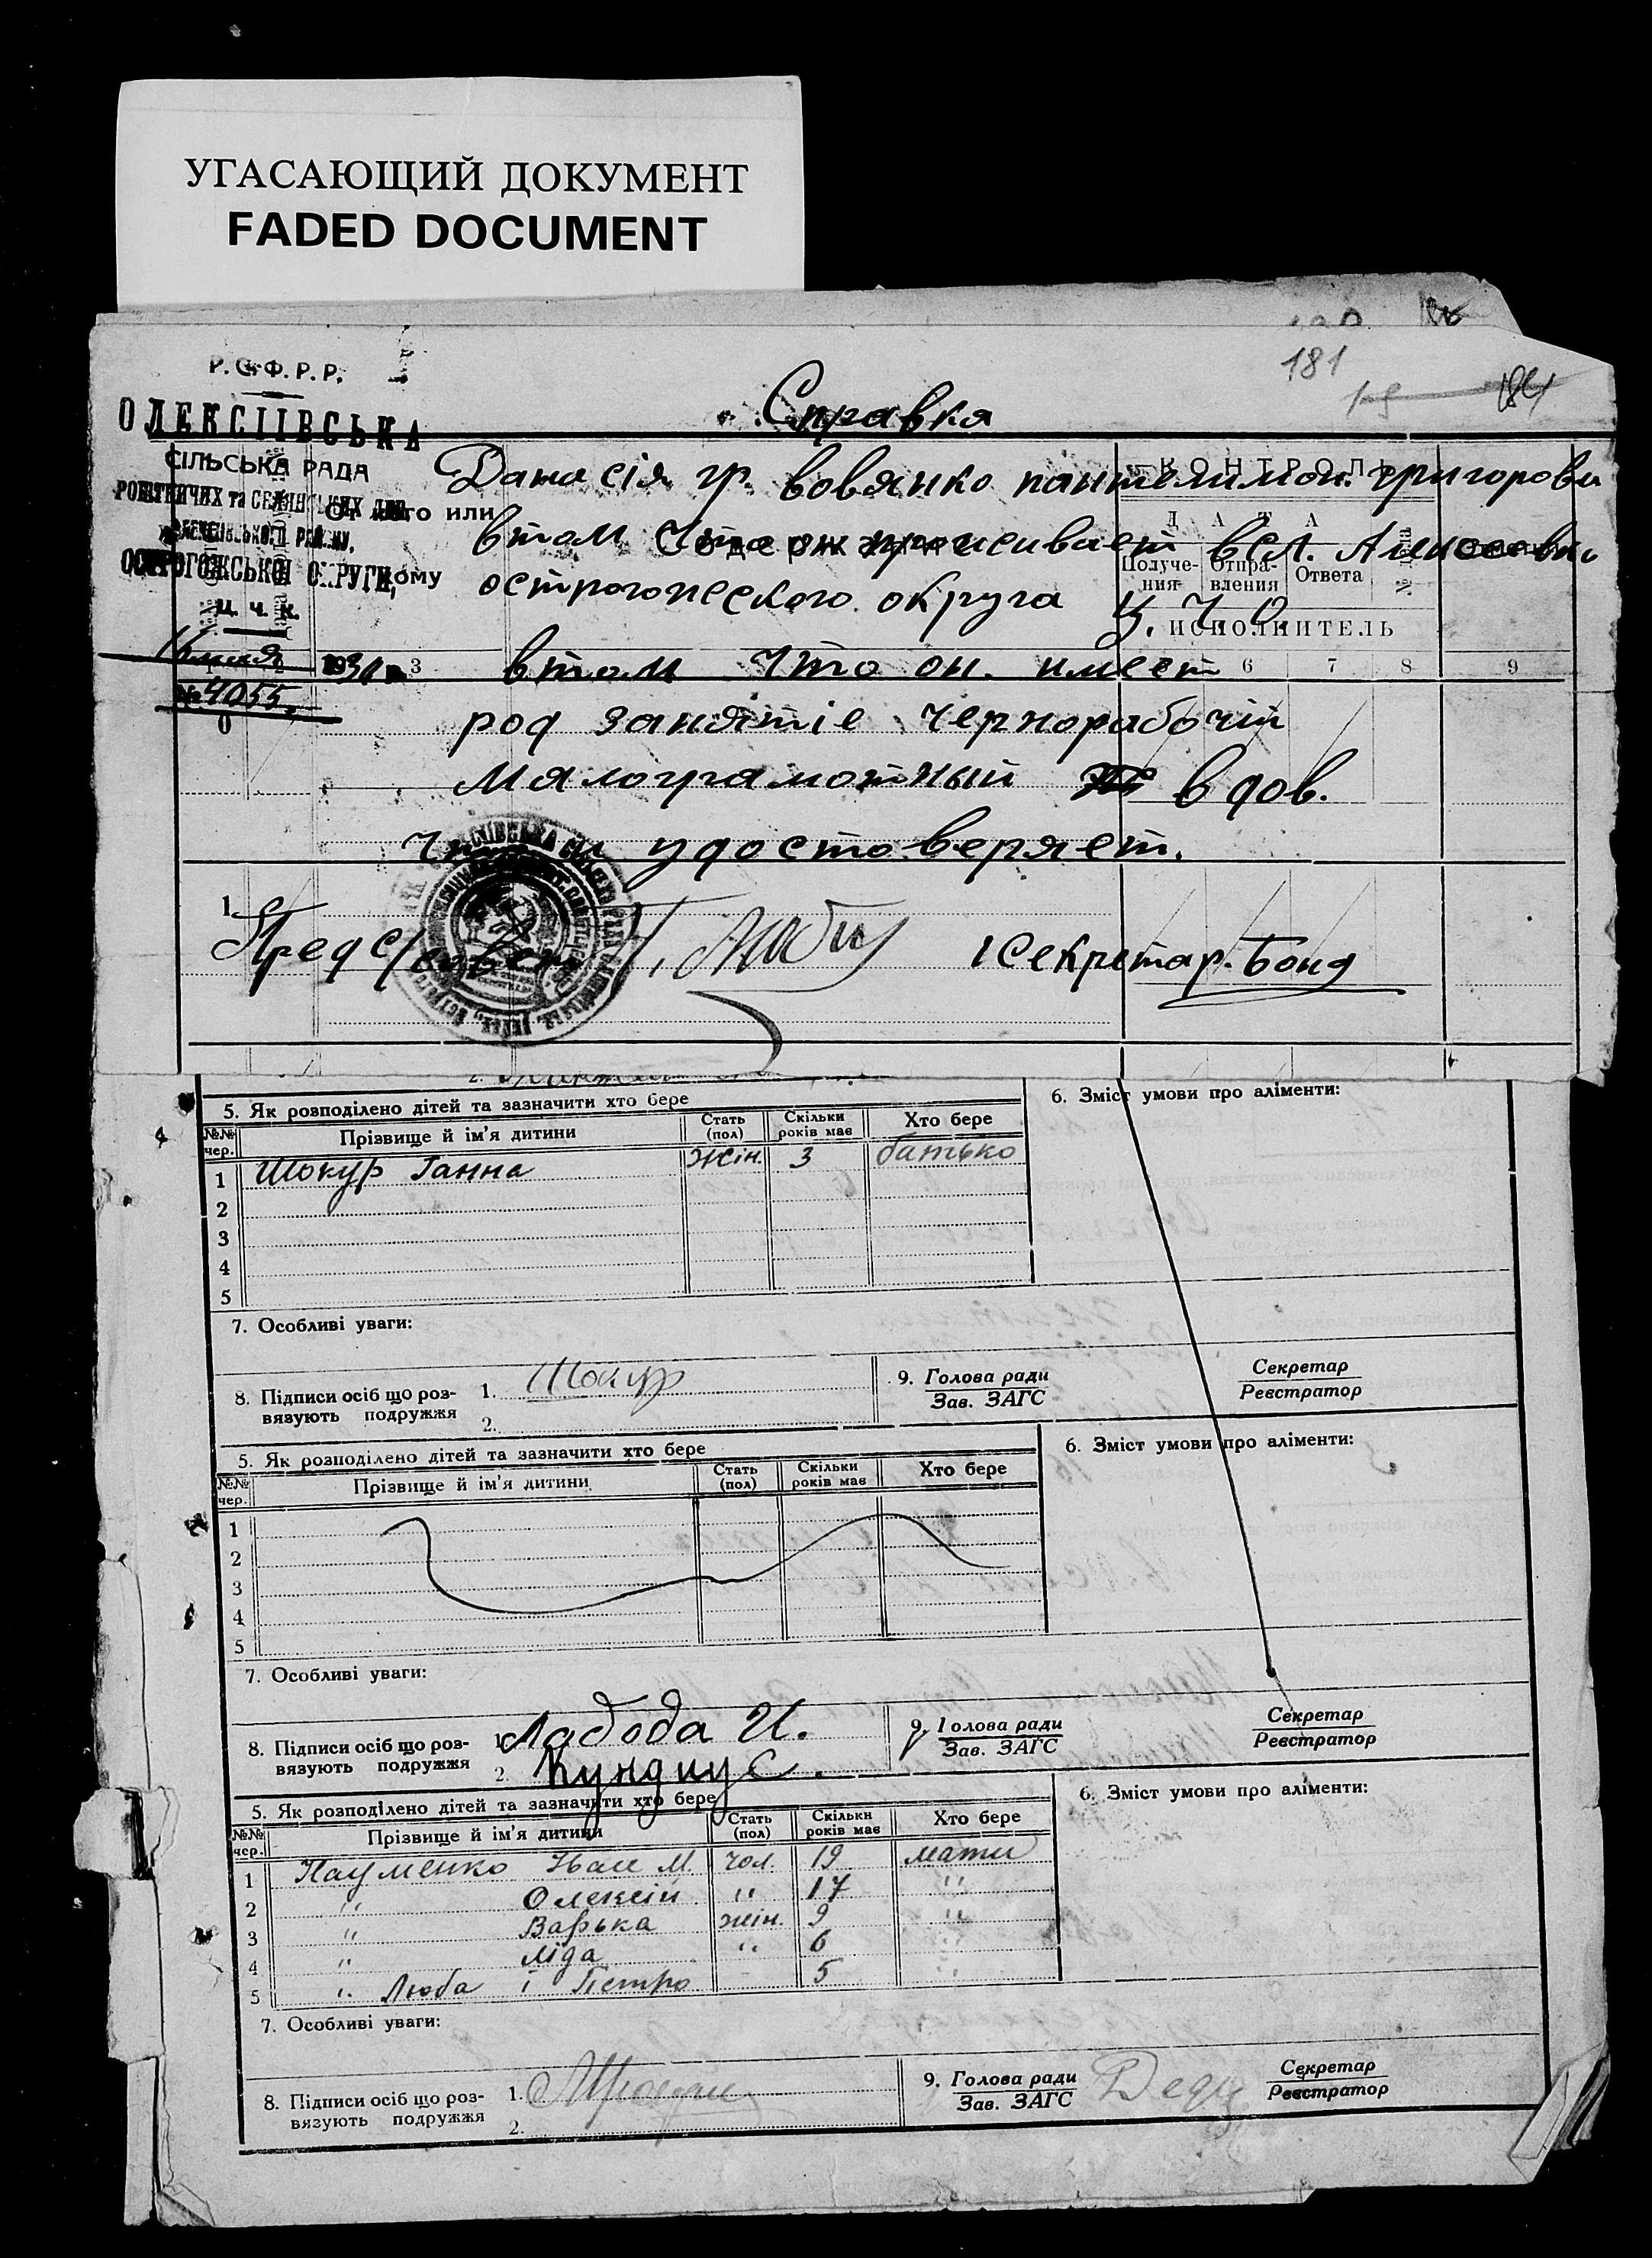 УГАСАЮЩИЙ ДОКУМЕНТ
FADED DOCUMENT
181
181
Р.С.Ф.Р.Р.
ОЛЕКСІЇВСЬКА
СІЛЬСЬКА РАДА
РОБІТНИЧИХ та СЕЛЯНСЬКИХ ДЕП.
ОСТРОГОЖСЬКОЇ ОКРУГИ,
Ц. Ч. К.
1930 р.
№ 4055
Справка
Дана сія гр. Вовянко пантелимон. григорови
втом что он проживает в сл. Алексеевки
острогожского округа Ц. Ч. О.
втом что он. имеет
род занятіе чернорабочій
малограмотный вдов.
удостоверяет.
Пред с/совета
Секретар. Бонд
КОНТРОЛЬ
ДАТА
От кого или
кому
Содержание
Получе-ния
Отпра-вления
Ответа
ИСПОЛНИТЕЛЬ
3 6 7 8 9
0
1
5. Як розподілено дітей та зазначити хто бере
6. Зміст умови про аліменти:
№№ чер. Прізвище й ім'я дитини Стать (пол) Скільки років має Хто бере
1 Шокур Ганна жін. 3 батько
2
3
4
5
7. Особливі уваги:
8. Підписи осіб що роз-
вязують подружжя
1. Шокур
2.
9. Голова ради
Зав. ЗАГС
Секретар
Реєстратор
5. Як розподілено дітей та зазначити хто бере
6. Зміст умови про аліменти:
№№ чер. Прізвище й ім'я дитини Стать (пол) Скільки років має Хто бере
1
2
3
4
5
7. Особливі уваги:
8. Підписи осіб що роз-
вязують подружжя
1. Лабода И.
2.
9. Голова ради
Зав. ЗАГС
Секретар
Реєстратор
5. Як розподілено дітей та зазначити хто бере
6. Зміст умови про аліменти:
№№ чер. Прізвище й ім'я дитини Стать (пол) Скільки років має Хто бере
1 Науменко Іван М. чол. 19 мати
2 " Олексій " 17 "
3 " Варька жін. 9 "
4 " Ліда " 6 "
5 " Люба і Петро 5 "
7. Особливі уваги:
8. Підписи осіб що роз-
вязують подружжя
1.
2.
9. Голова ради
Зав. ЗАГС
Секретар
Реєстратор